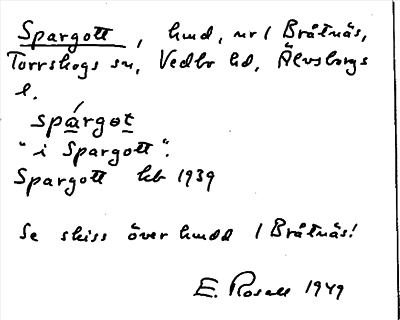 Spargott, hmd, nr 1 Bråtnäs,
Torrskogs sn, Vedbo hd, Älvsborgs
l.
spárgot
"i Spargott".
Spargott kb 1939
Se skiss över hmdd 1 Bråtnäs!
E. Rosell 1949